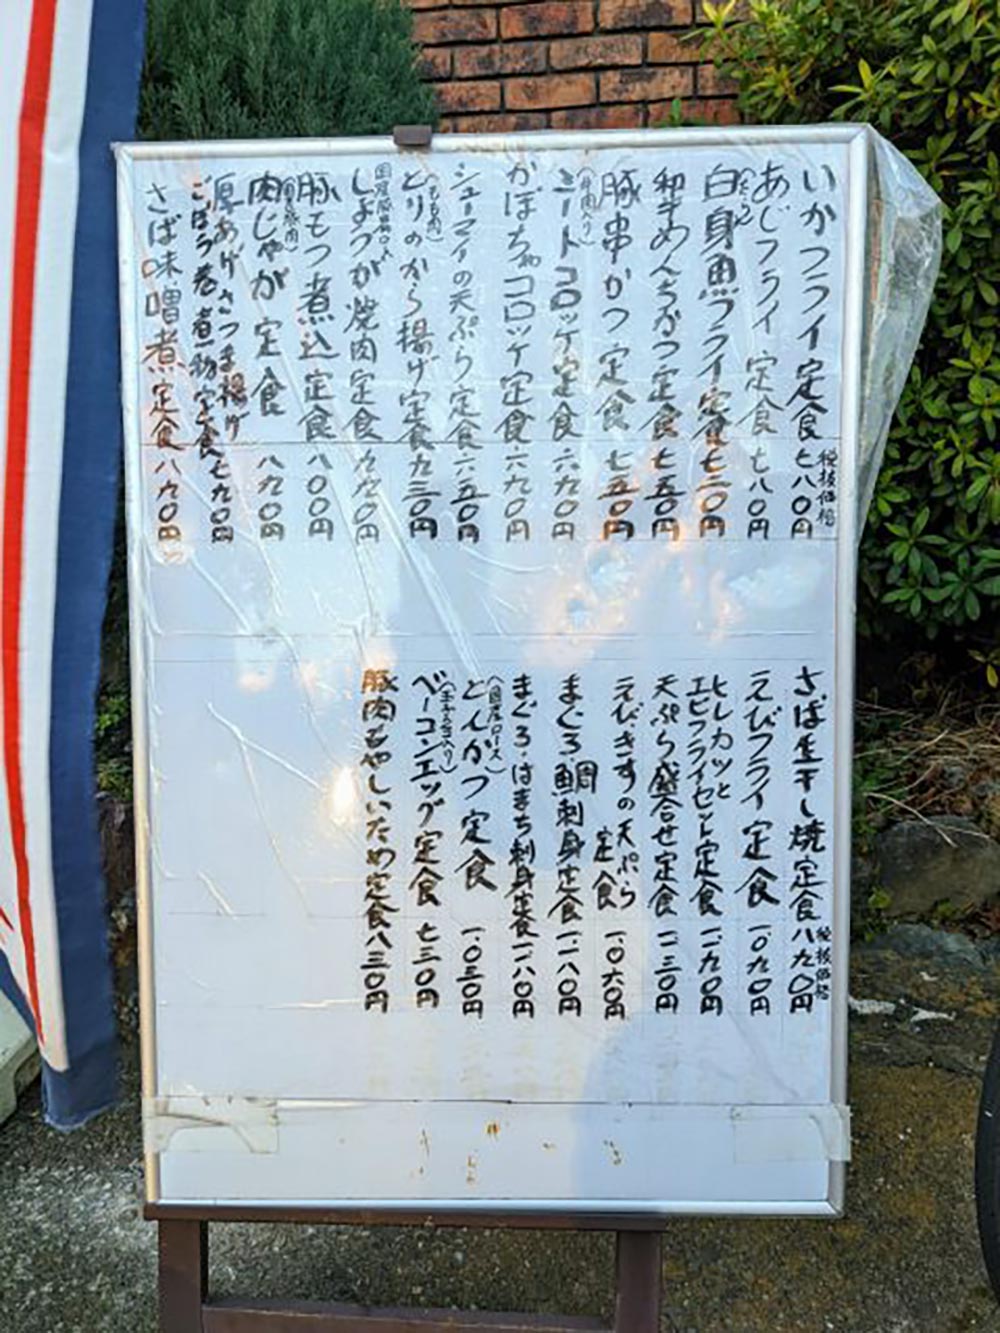 いかフライ定食 七八〇円
税抜価格
あじフライ定食 七八〇円
白身魚フライ定食 七二〇円
(たら)
和牛めんちかつ定食 七五〇円
豚串かつ定食 七五〇円
ミートコロッケ定食 六九〇円
かぼちゃコロッケ定食 六九〇円
シューマイの天ぷら定食 六五〇円
とりのから揚げ定食 九三〇円
(もも肉)
しょうが焼肉定食 九九〇円
豚もつ煮込定食 八〇〇円
肉じゃが定食 八九〇円
厚あげさつま揚げ
ごぼう巻煮物定食 七九〇円
さば味噌煮定食 八九〇円
さば生干し焼定食 八九〇円
税抜価格
えびフライ定食 一、〇九〇円
ヒレカツと
エビフライセット定食 一、一九〇円
天ぷら盛合せ定食 一、二三〇円
えびきすの天ぷら
定食 一、〇六〇円
まぐろ・鯛刺身定食 一、一八〇円
まぐろ・はまち刺身定食 一、一八〇円
とんかつ定食 一、〇三〇円
(国産ロース)
ベーコンエッグ定食 七三〇円
(キャベツ入り)
豚肉もやしいため定食 八三〇円